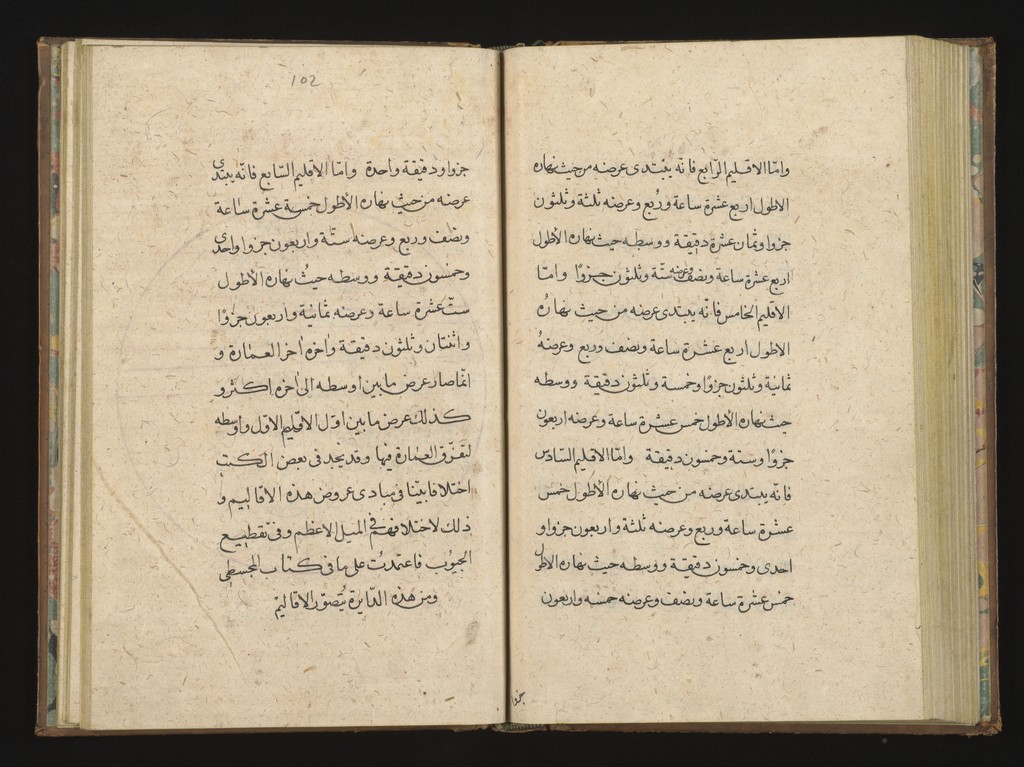 واما الاقليم الرابع فانه يبتدى عرضه من حيث نهاره
الاطول اربع عشرة ساعة وربع وعرضه ثلثة وثلثون
جزوا وثمان عشرة دقيقة ووسطه حيث نهاره الأطول
اربع عشرة ساعة ونصف وعرضه ستة وثلثون جزوًا وامّا
الاقليم الخامس فانّه يبتدى عرضه من حيث نهارُه
الاطول اربع عشرة ساعة ونصف وربع وعرضهُ
ثمانية وثلثون جزوًا وخمسة وثلثون دقيقة ووسطه
حيث نهاره الأطول خمس عشرة ساعة وعرضه اربعون
جزوًا وستة وخمسون دقيقة وامّا الاقليم السّادس
فانّه يبتدى عرضه من حيث نهاره الأطول خمس
عشرة ساعة وربع وعرضه ثلثة واربعون جزوا و
احدى وخمسون دقيقة ووسطه حيث نهاره الاطول
خمس عشرة ساعة ونصف وعرضه خمسه واربعون
جزوا
102
جزوا ودقيقة واحدة وامّا الاقليم السّابع فانّه يبتدى
عرضه من حيث نهاره الأطول خمسة عشرة ساعة
ونصف وربع وعرضه ستّة واربعون جزوا واحدى
وخمسون دقيقة ووسطه حيثُ نهاره الأطول
ستّ عشرة ساعة وعرضه ثمانية واربعون جزوًا
واثنتان وثلثون دقيقة واخره اخر العمارة و
انّما صار عرض ما بين اوسطه الى اخره اكثر و
كذلك عرض ما بين اوّل الاقليم الاوّل واوسطه
لتفرّق العمارة فيها وقد يجد فى بعض الكتب
اختلافا بيّنا فى مبادى عروض هذه الاقاليم و
ذلك لاختلافهم فى الميل الاعظم وفى تقطيع
الجيُوب فاعتمدتُ على ما فى كتاب المجسطى
ومن هذه الدّايرة يُتصوّر الاقاليم